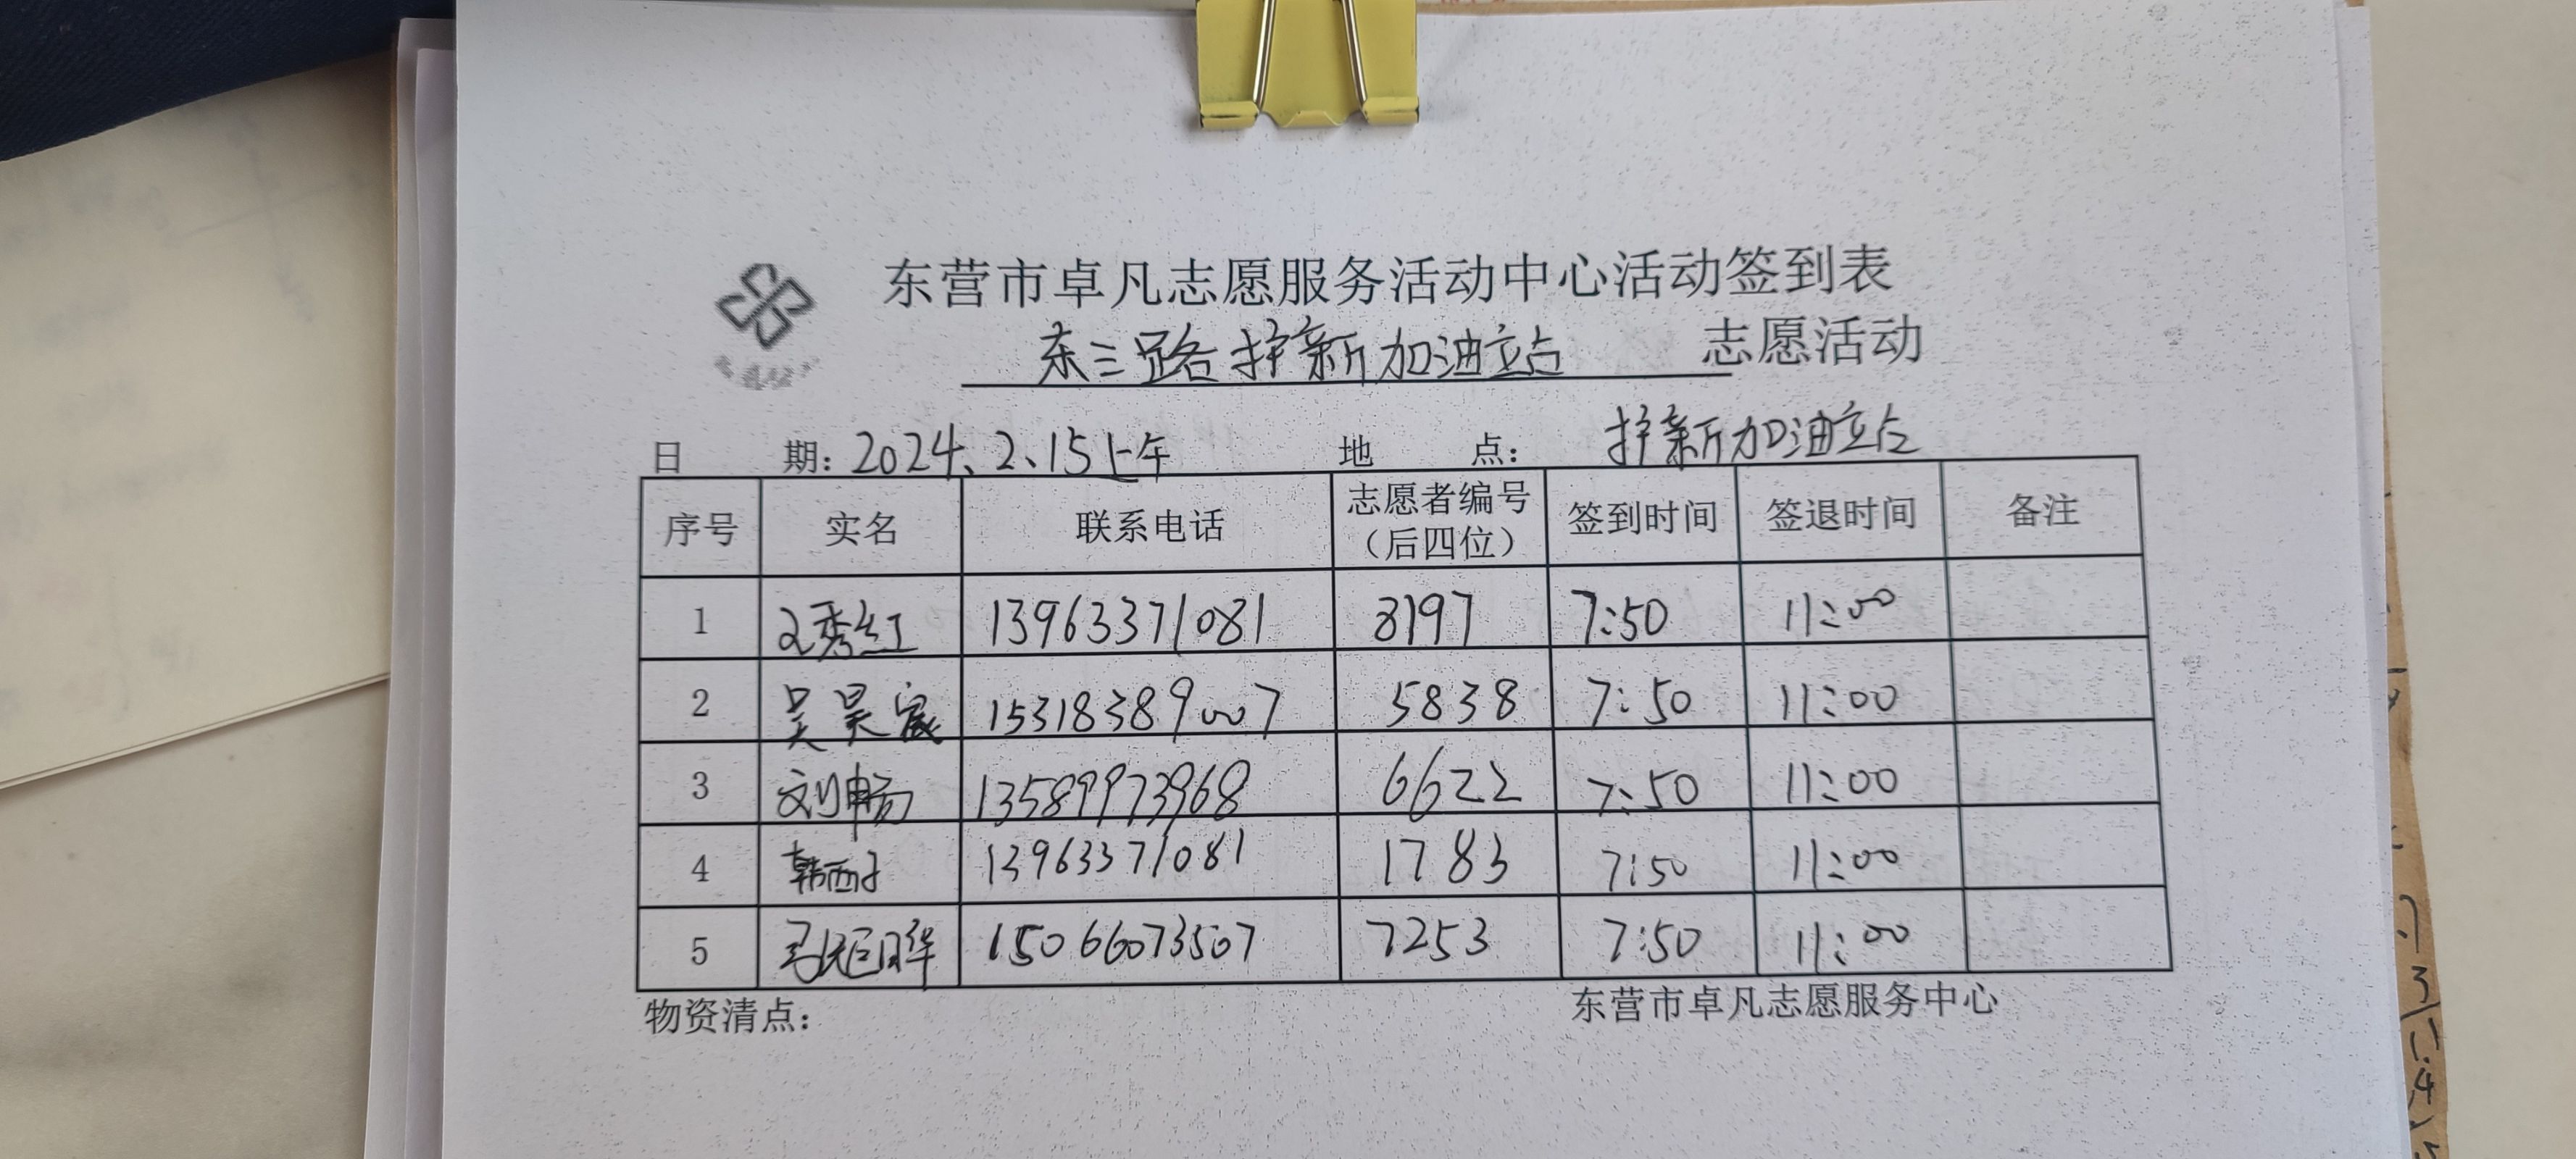 东营市卓凡志愿服务活动中心活动签到表
东三路护新加油立占 志愿活动
日 期：2024、2、15上午 地 点： 护新加油立占
序号 实名 联系电话 志愿者编号（后四位） 签到时间 签退时间 备注
1 秀红 13963371081 8197 7:50 11:00
2 吴昊宬 15318389007 5838 7:50 11:00
3 刘畅 13589973968 6622 7:50 11:00
4 韩西子 13963371081 1783 7:50 11:00
5 15066073507 7253 7:50 11:00
物资清点： 东营市卓凡志愿服务中心